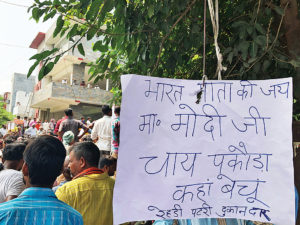 भारत माता की जय
मा० मोदी जी
चाय पकौड़ा
कहां बेचू
रेहडी पटरी दुकानदार